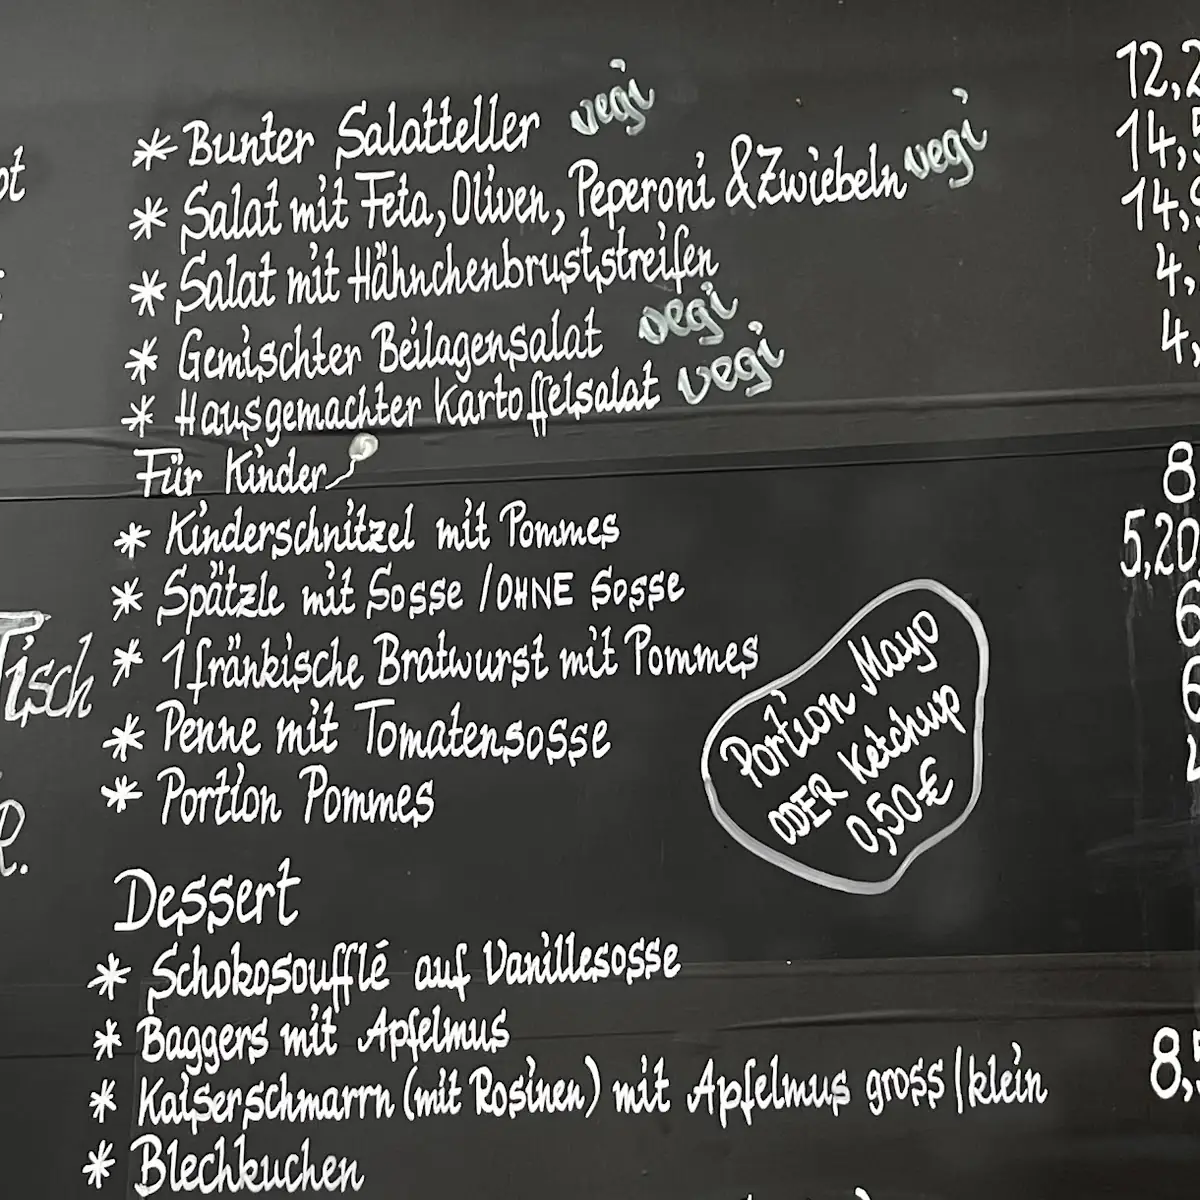 * Bunter Salatteller vegi
* Salat mit Feta, Oliven, Peperoni & Zwiebeln vegi
* Salat mit Hähnchenbruststreifen
* Gemischter Beilagensalat vegi
* Hausgemachter Kartoffelsalat vegi
Für Kinder
* Kinderschnitzel mit Pommes
* Spätzle mit Sosse / OHNE Sosse
* 1 fränkische Bratwurst mit Pommes
* Penne mit Tomatensosse
* Portion Pommes
Portion Mayo
ODER Ketchup
0,50 €
Dessert
* Schokosoufflé auf Vanillesosse
* Baggers mit Apfelmus
* Kaiserschmarrn (mit Rosinen) mit Apfelmus gross / klein
* Blechkuchen
Tisch
5,20